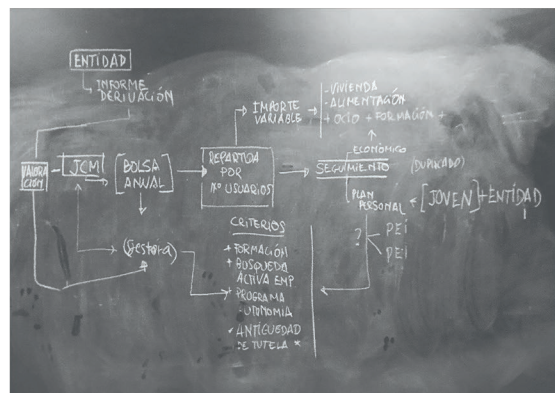 ENTIDAD
INFORME
DERIVACIÓN
VALORA
CIÓN
JCM
[BOLSA
ANUAL]
REPARTIDA
POR
Nº USUARIOS
IMPORTE
VARIABLE
-VIVIENDA
-ALIMENTACIÓN
+ OCIO + FORMACIÓN +
ECONÓMICO
SEGUIMIENTO
(DUPLICADO)
PLAN
PERSONAL
[JOVEN] + ENTIDAD
?
PEI
PEI
(gestora)
CRITERIOS
+ FORMACIÓN
+ BÚSQUEDA
ACTIVA EMP.
+ PROGRAMA
AUTONOMIA
✓ ANTIGUEDAD
DE TUTELA *